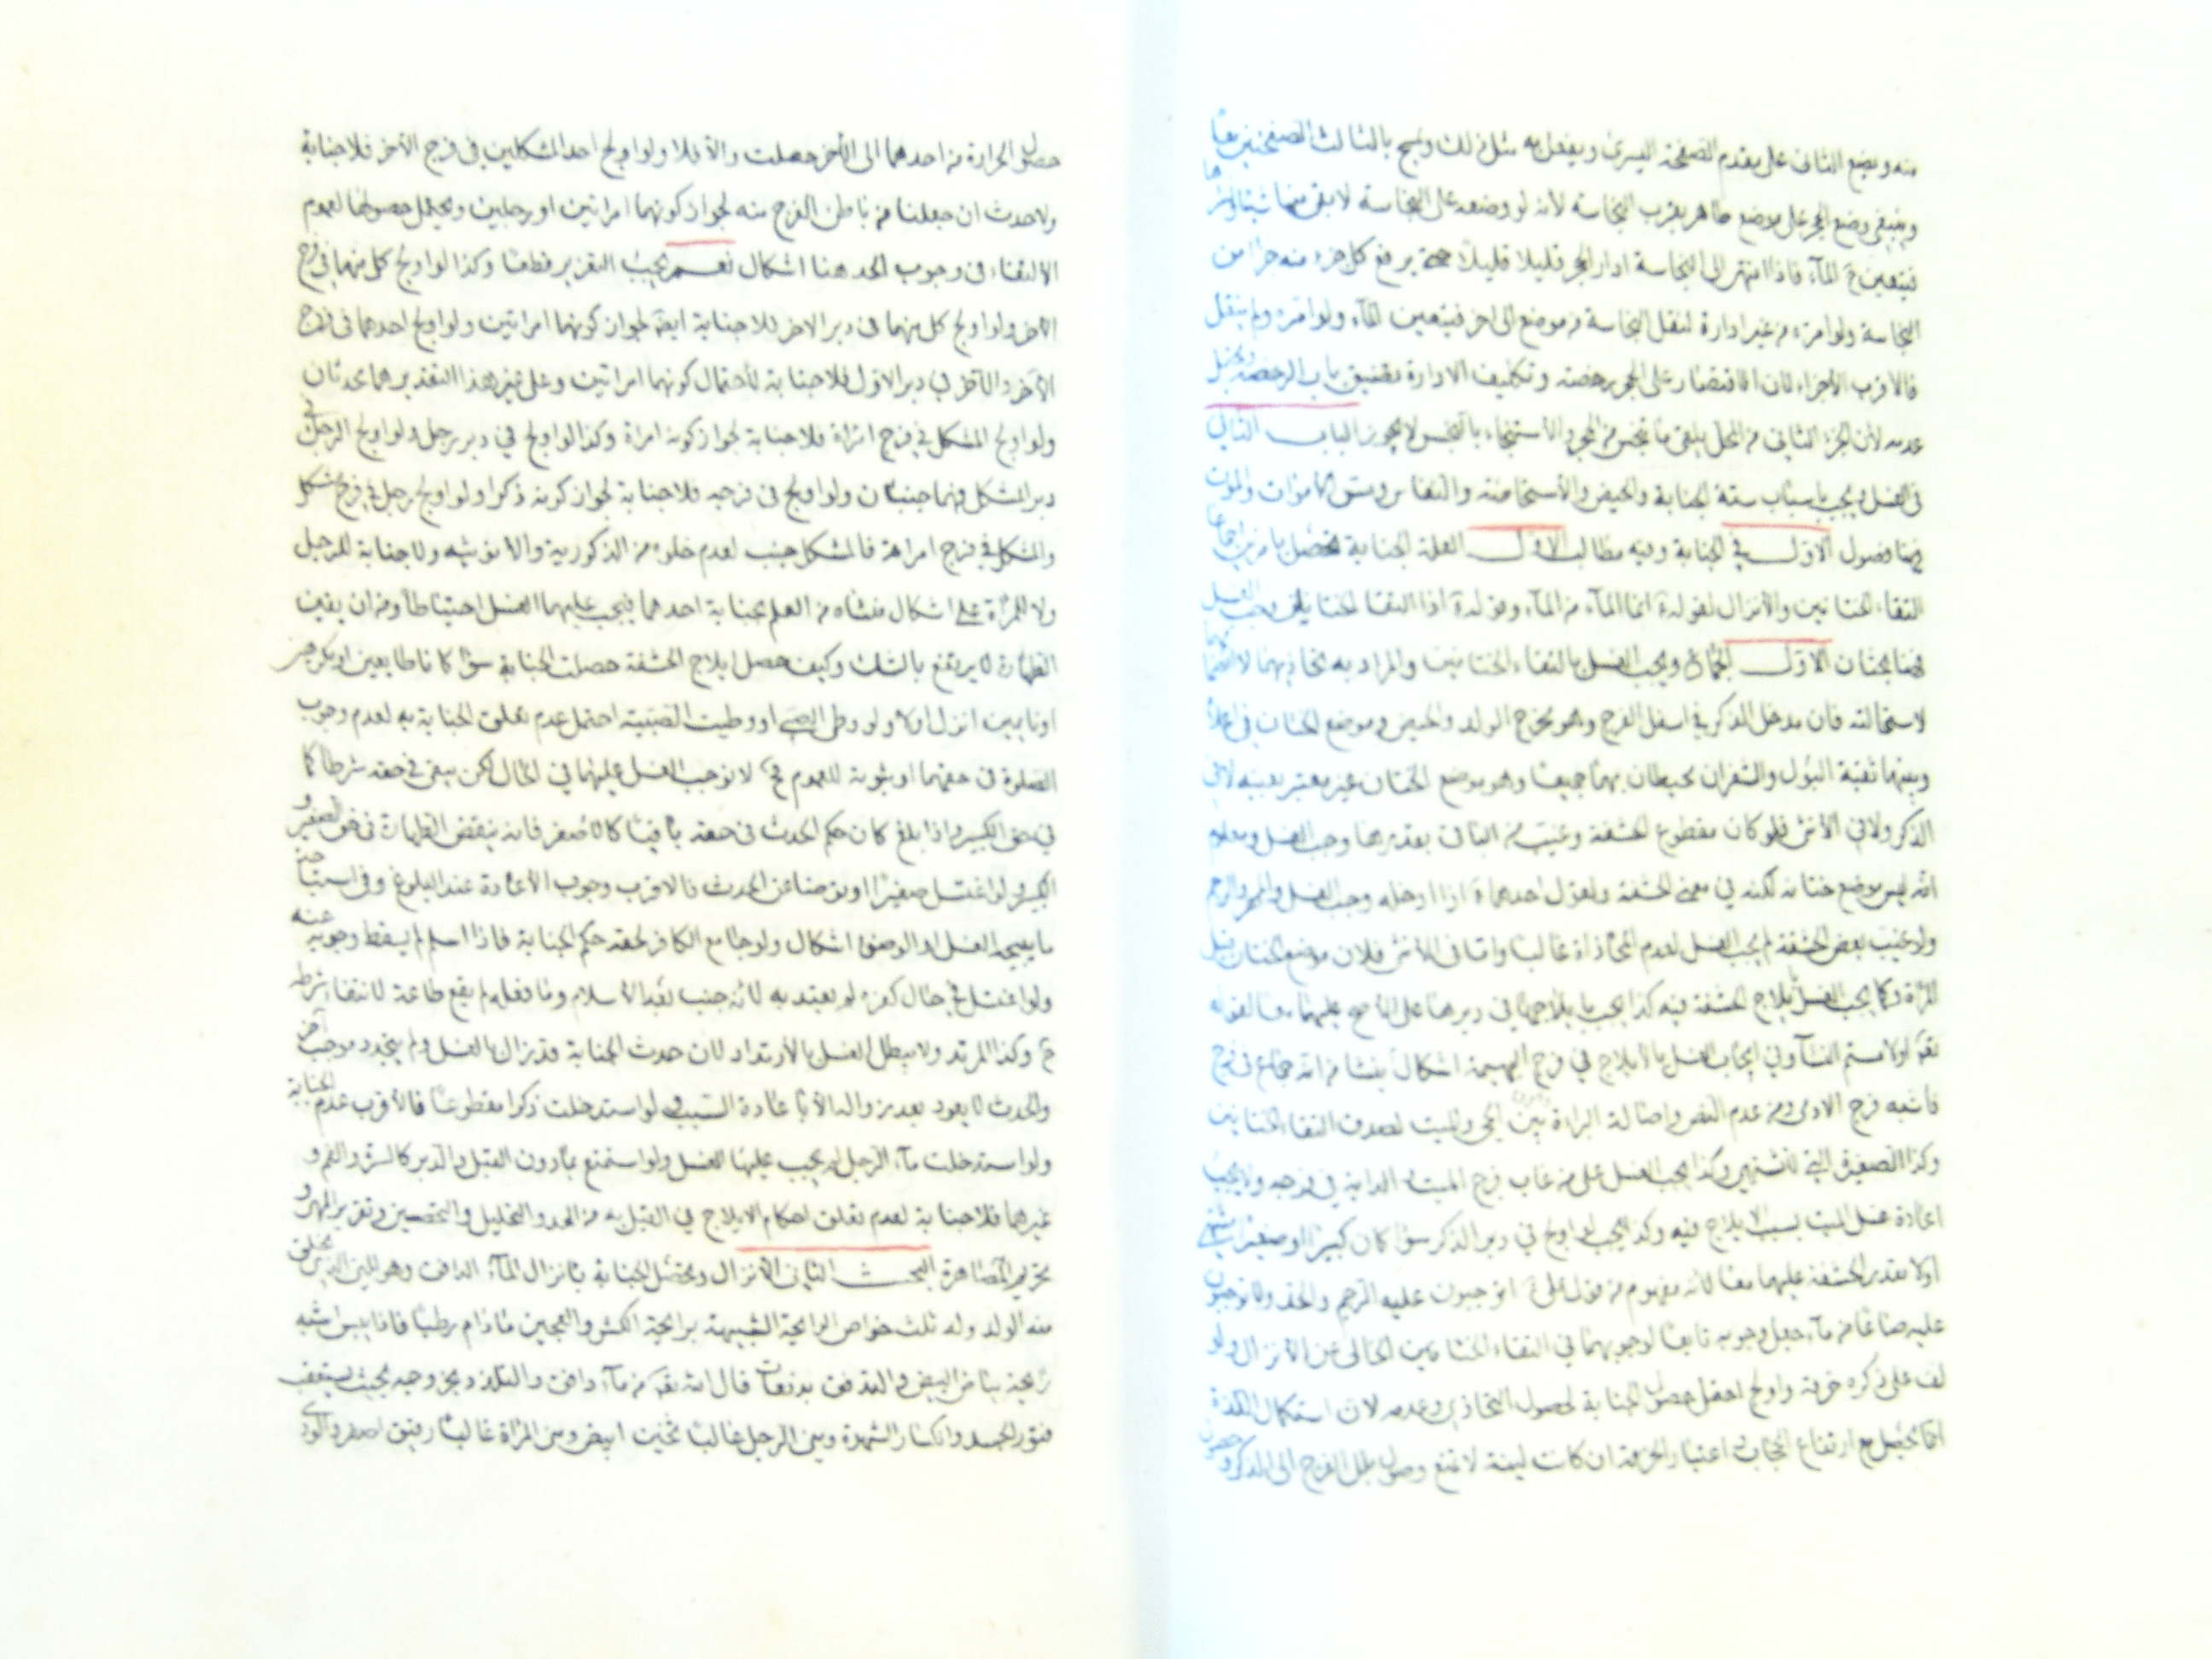 منه ويضع الثانى على مقدم الصفحة اليسرى ويفعل به مثل ذلك ويمسح بالثالث الصفحتين معا
وينبغى وضع الحجر على موضع طاهر بقرب النجاسة لانه لو وضعه على النجاسة لابقى منها شيئا ونشرها
فيتعين ح المآء فاذا انتهى الى النجاسة ادار الحجر قليلا قليلا حتى يرفع كل جزء منه جزا من
النجاسة ولو امره من غير ادارة لنقل النجاسة من موضع الى اخر فيتعين المآء ولو امره ولم ينقل
فالاقرب الاجزاء لان الاقتصار على الحجر رخصة وتكليف الادارة تضييق باب الرخصة ويحتمل
عدمه لان الجزء الثانى من المحل يلقى ما تنجس من الحجر والاستنجاء بالنجس لا يجوز الباب الثانى
فى الغسل ويجب باسباب ستة الجنابة والحيض والاستحاضة والنفاس ومس الاموات والموت
فهنا فصول الاول في الجنابة وفيه مطالب الاول العلة الجنابة تحصل بامرين اجماعا
التقاء الختانين والانزال لقوله ع انما المآء من المآء وقوله ع اذا التقا الختانان وجب الغسل
فهنا بحثان الاول الجماع ويجب الغسل بالتقاء الختانين والمراد به تحاذيهما لا انضمامهما
لاستحالته فان مدخل الذكر في اسفل الفرج وهو مخرج الولد والحيض وموضع الختان فى اعلاه
وبينهما ثقبة البول والشفران محيطان بهما جميعا وهو موضع الختان غير معتبر بعينه لا فى
الذكر ولا فى الانثى فلو كان مقطوع الحشفة وغيب من الباقى بقدرها وجب الغسل ومعلوم
انه ليس موضع ختانه لكنه في معنى الحشفة ولقول احدهما ع اذا ادخله وجب الغسل والمهر والرجم
ولو غيب بعض الحشفة لم يجب الغسل لعدم المحاذاة غالبا واما فى الانثى فلان موضع الختان قبل
المراة وكما يجب الغسل بايلاج الحشفة فيه كذا يجب بايلاجها في دبرها على الاصح عليهما لقوله
تعم اولامستم النسآء وفي ايجاب الغسل بالايلاج في فرج البهيمة اشكال ينشا من انه جماع فى فرج
فاشبه فرج الادمى ومن عدم النص واصالة البراة بين الحى والميت لصدق التقاء الختانين
وكذا الصغيرة التي لا تشتهى وكذا يجب الغسل على من غاب فرج الميت او الدابة في فرجه ولا يجب
اعادة غسل الميت بسبب الايلاج فيه وكذا يجب لو اولج في دبر الذكر سوآء كان كبيرا او صغيرا يشتهى
اولا بقدر الحشفة عليهما معا لانه مفهوم من قول على ع اتوجبون عليه الرجم والحد ولا توجبون
عليه صاعا من مآء جعل وجوبه تابعا لوجوبهما في التقاء الختانين الخالى عن الانزال ولو
لف على ذكره خرقة واولج احتمل حصول الجنابة لحصول التحاذى وعدمه لان استكمال اللذة
انما يحصل مع ارتفاع الحجاب واعتبار الخرقة ان كانت لينة لا تمنع وصول بلل الفرج الى الذكر وحصول
حصول الحرارة من احدهما الى الاخر حصلت والا فلا ولو اولج احد المشكلين فى فرج الاخر فلا جنابة
ولا حدث ان جعلنا من باطن الفرج منه لجواز كونهما امراتين او رجلين ويحتمل حصولها لعموم
الالتقاء وفى وجوب الحد هنا اشكال نعم يجب التعزير قطعا وكذا لو اولج كل منهما فى فرج
الاخر ولو اولج كل منهما فى دبر الاخر فلا جنابة ايضا لجواز كونهما امراتين ولو اولج احدهما فى فرج
الاخر والاخر في دبر الاول فلا جنابة لاحتمال كونهما امراتين وعلى غير هذا التقدير هما محدثان
ولو اولج المشكل في فرج امراة فلا جنابة لجواز كونه امراة وكذا لو اولج في دبر رجل ولو اولج الرجل فى
دبر المشكل فهما جنبان ولو اولج فى فرجه فلا جنابة لجواز كونه ذكرا ولو اولج رجل في فرج مشكل
والمشكل في فرج امراة فالمشكل جنب لعدم خلوه من الذكورية والانوثية ولا جنابة للرجل
ولا للمراة على اشكال منشاه من العلم بجنابة احدهما فيجب عليهما الغسل احتياطا ومن ان يقين
الطهارة لا يرتفع بالشك وكيف حصل ايلاج الحشفة حصلت الجنابة سوآء كانا طايعين او مكرهين
او نايمين انزل اولا ولو وطى الصبى او وطيت الصبية احتمل عدم تعلق الجنابة به لعدم وجوب
الصلوة فى حقهما او ثبوته للعموم فح لا نوجب الغسل عليهما في الحال لكن يبقى في حقه شرطا كما
في حق الكبير واذا بلغ كان حكم الحدث فى حقه باقيا كالاصغر فانه ينقض الطهارة فى حق الصغير و
الكبير ولو اغتسل صغيرا او توضا عن الحدث فالاقرب وجوب الاعادة عند البلوغ وفى استباحة
ما يبيحه الغسل او الوضوء اشكال ولو جامع الكافر لحقه حكم الجنابة فاذا اسلم لم يسقط وجوبه عنه
ولو اغتسل في حال كفره لم يعتد به لانه جنب بعد الاسلام وما فعله لم يقع طاعة لانتفاء شرطه
ح وكذا المرتد ولا يبطل الغسل بالارتداد لان حدث الجنابة قد زال بالغسل ولم يتجدد موجب اخر
والحدث لا يعود بعد زواله الا باعادة السبب ولو استدخلت ذكرا مقطوعا فالاقرب عدم الجنابة
ولو استدخلت مآء الرجل لم يجب عليها الغسل ولو استمتع بما دون القبل والدبر كالسرة والفم و
غيرهما فلا جنابة لعدم تعلق احكام الايلاج في القبل به من الحد والتحليل والتحصين وتقرير المهر و
تحريم المصاهرة البحث الثانى الانزال وتحصل الجنابة بانزال المآء الدافق وهو المنى الذى يخلق
منه الولد وله ثلث خواص الرايحة الشبيهة برايحة الكش والعجين مادام رطبا فاذا يبس اشبه
رايحة بياض البيض والتدفق بدفعات قال الله تعم من مآء دافق والتلذذ بخروجه بحيث يستعقب
فتور الجسد وانكسار الشهوة ومنى الرجل غالبا ثخين ابيض ومنى المراة غالبا رقيق اصفر والودى